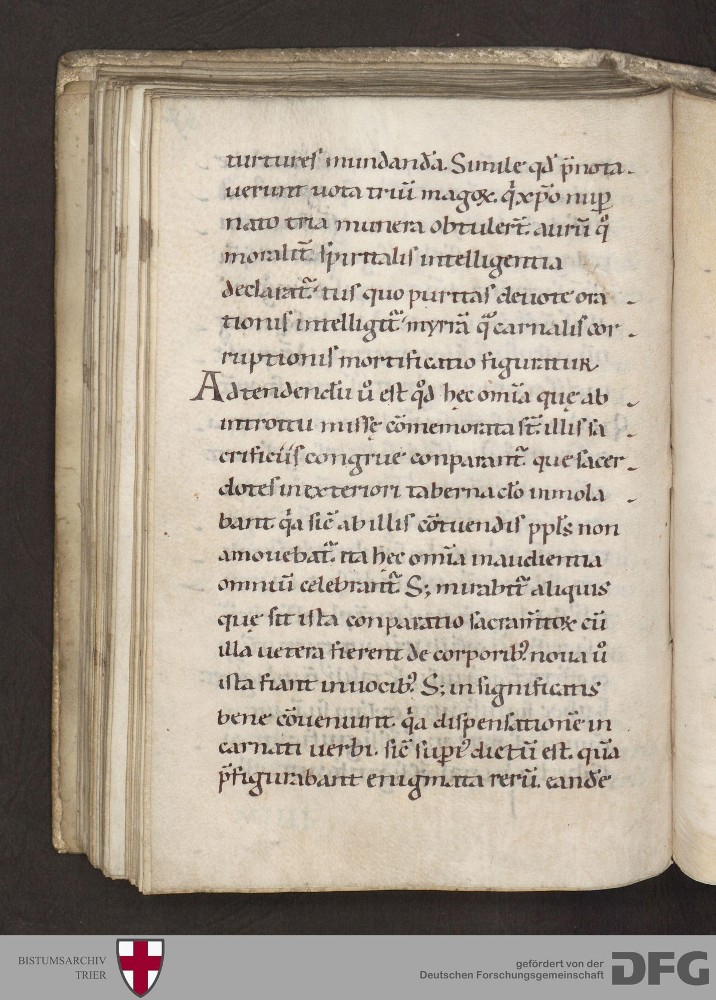 turtures mundanda. Simile qd̄ p̄nota
uerunt uota triū magoꝝ. q̇ xp̄o nup̲
nato tria munera obtuler̄t. aurū q̊
moralit̄ sp̄iritalis intelligentia
declarat᷑. tus quo puritas deuote ora
tionis intelligit᷑. myrrā q̄ carnalis cor
ruptionis mortificatio figuratur
Adtendendū ů est qd̄ hęc om̄ia quę ab
introitu missę cōmemorata st̄. illis sa
crificiis congrue conparant᷑. que sacer
dotes in exteriori tabernac̄lo inmola
bant q̇a sic̄ ab illis cōtuendis ppl̄s non
amouebat᷑. ita hęc om̄ia in audientia
omniū celebrant᷑. S; mirabit᷑ aliquis
quę sit ista conparatio sacram̄toꝝ cū
illa uetera fierent de corporib; noua ů
ista fiant in uocib; S; in significatis
bene cōueniunt. q̇a dispensationē in
carnati uerbi. sic̄ superi᷑ dictū est. quā
p̄figurabant enigmata rerū. eandē
BISTUMSARCHIV
TRIER
gefördert von der
Deutschen Forschungsgemeinschaft
DFG